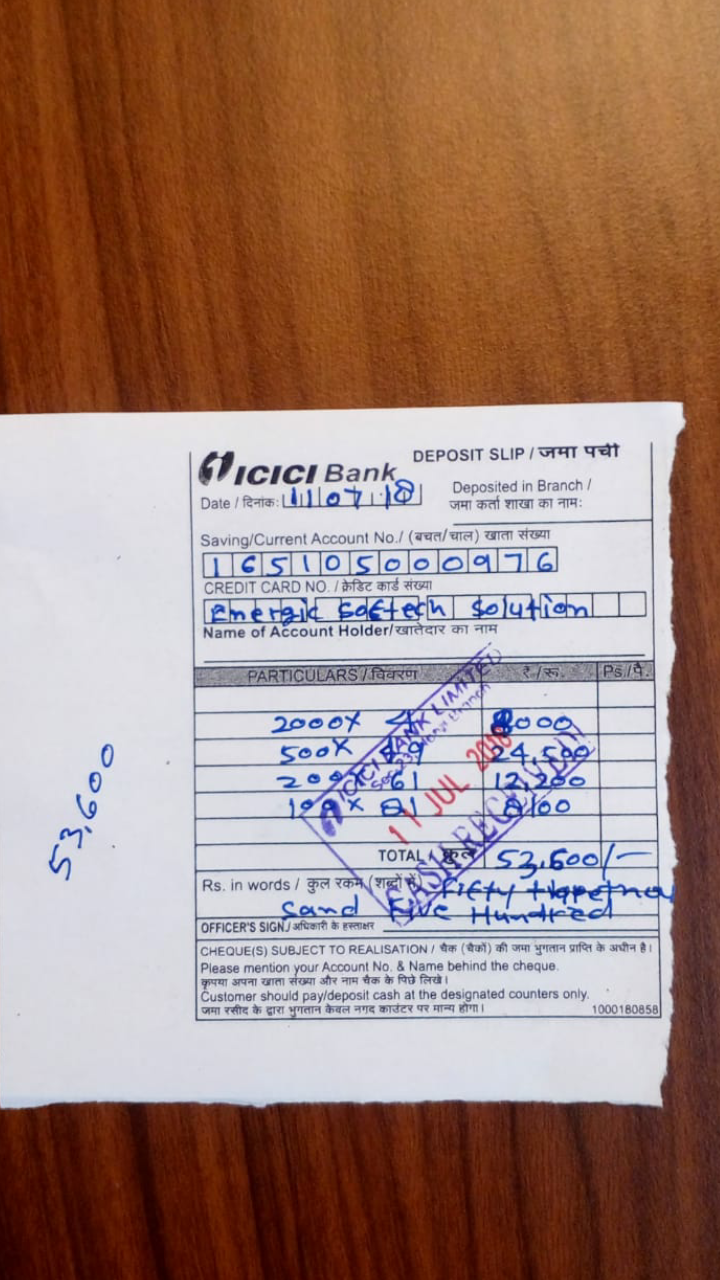 ICICI Bank
DEPOSIT SLIP / जमा पर्ची
Date / दिनांक: 11 07 18
Deposited in Branch /
जमा कर्ता शाखा का नाम:
Saving/Current Account No./ (बचत/चाल) खाता संख्या
165105000976
CREDIT CARD NO. / क्रेडिट कार्ड संख्या
Energic Softech Solution
Name of Account Holder/खातेदार का नाम
PARTICULARS / विवरण ₹ /रू. Ps /पै.
2000X 4 8000
500X 49 24,500
200X 61 12,200
100X 81 8100
ICICI BANK LIMITED
11 JUL 2018
CASH RECEIVED
53,600
TOTAL / कुल 53,600/-
Rs. in words / कुल रकम (शब्दों में) Fifty
sand Five Hundred
OFFICER'S SIGN./ अधिकारी के हस्ताक्षर
CHEQUE(S) SUBJECT TO REALISATION / चैक (चैकों) की जमा भुगतान प्राप्ति के अधीन है।
Please mention your Account No. & Name behind the cheque.
कृपया अपना खाता संख्या और नाम चैक के पिछे लिखे।
Customer should pay/deposit cash at the designated counters only.
जमा रसीद के द्वारा भुगतान केवल नगद काउंटर पर मान्य होगा। 1000180858